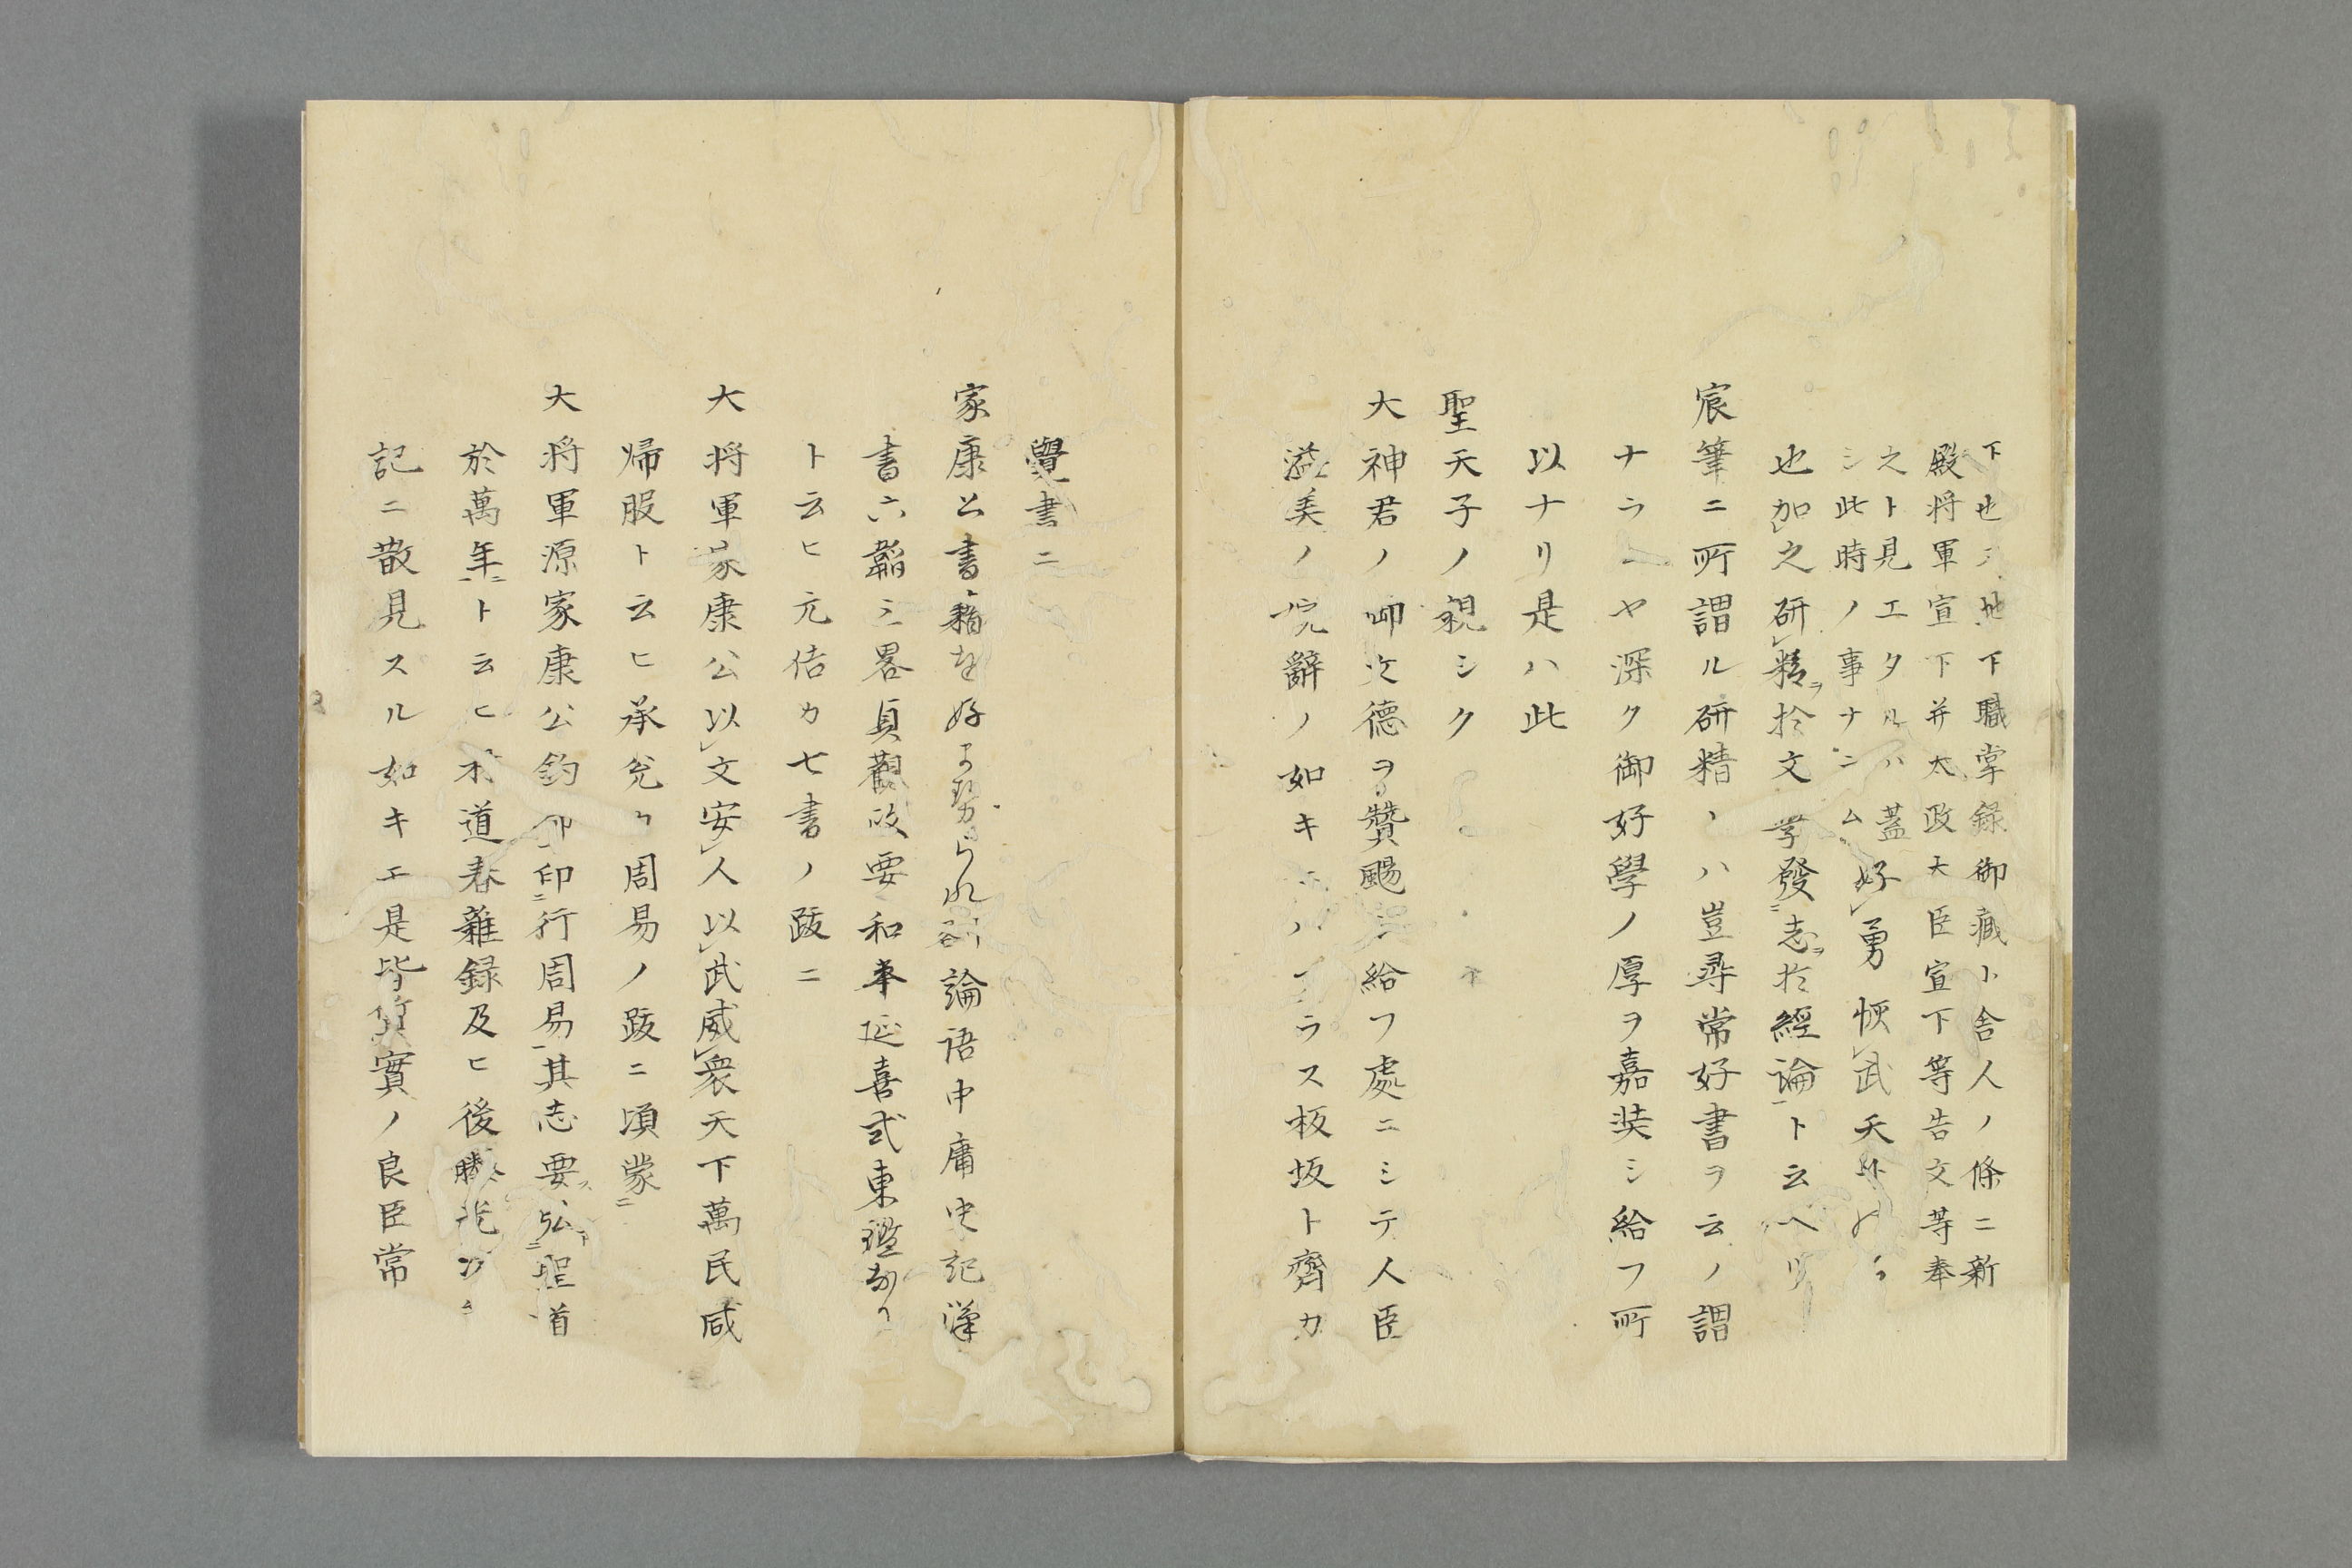 下也地下職掌録御蔵ト舎人ノ條ニ新
殿将軍宣下并太政大臣宣下等告文等奉
之ト見エタルハ蓋
シ此時ノ事ナラム
好勇恢武天
也加之研精於文学發志於經論ト云ヘリ
宸筆ニ所謂ル研精ハ豈尋常好書ヲ云ノ謂
ナランヤ深ク御好學ノ厚ヲ嘉奘シ給フ所
以ナリ是ハ此
聖天子ノ親シク
大神君ノ御文徳ヲ贊颺シ給フ處ニシテ人臣
溢美ノ辭ノ如キニハアラス板坂ト齋カ
覺書ニ
家康公書籍を好ませられ論語中庸史記漢
書六韜三畧貞觀政要和本延喜式東鑑なり
ト云ヒ元佶カ七書ノ跋ニ
大将軍家康公以文安人以武威衆天下萬民咸
帰服ト云ヒ承兌カ周易ノ跋ニ頃蒙ニ
大将軍源家康公鈞命印ニ行周易其志要弘ニ聖道
於萬年ニト云ヒ林道春雜録及ヒ後
記ニ散見スル如キエ是皆實ノ良臣常